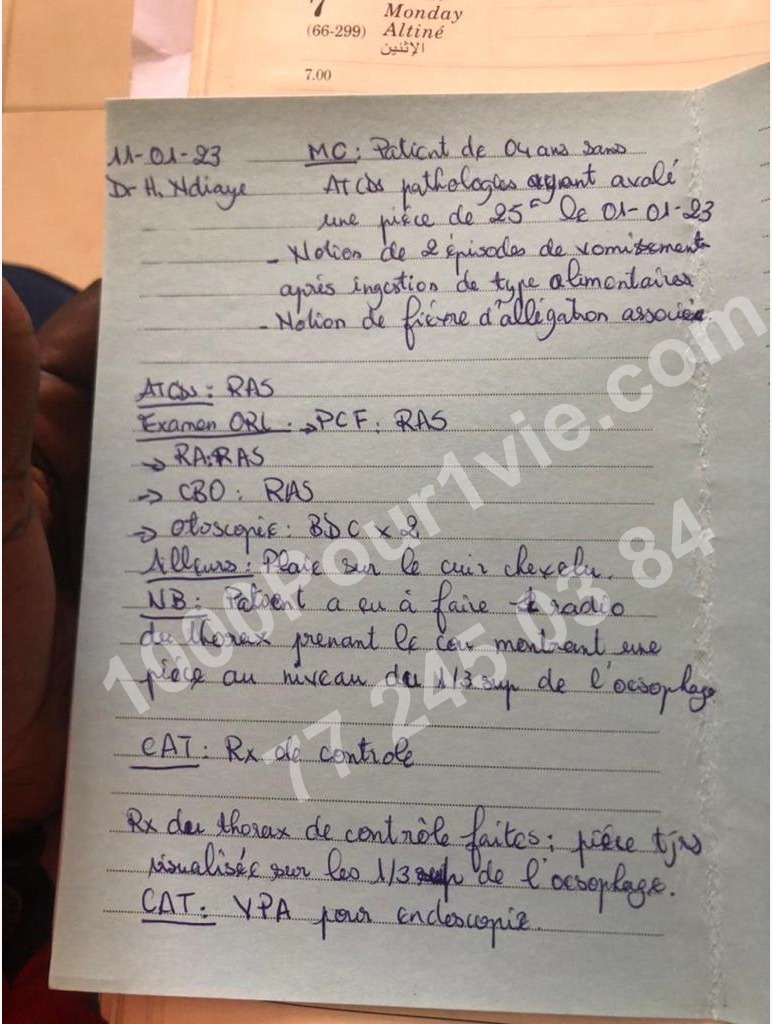 7
Monday
(66-299) Altiné
الإثنين
7.00
11-01-23 MC: Patient de 04 ans sans
Dr H. Ndiaye ATCDs pathologies ayant avalé
une pièce de 25F le 01-01-23
- Notion de 2 épisodes de vomissements
après ingestion de type alimentaires
- Notion de fièvre d'allégation associée.
ATCDs: RAS
Examen ORL: → PCF: RAS
→ RA: RAS
→ CBO: RAS
→ otoscopie: BDC x 2
Ailleurs: Plaie sur le cuir chevelu.
NB: Patient a eu à faire 1 radio
du thorax prenant le cou montrant une
pièce au niveau du 1/3 sup de l'oesophage
CAT: Rx de contrôle
Rx du thorax de contrôle faites; pièce tjrs
visualisée sur les 1/3 sup de l'oesophage.
CAT: VPA pour endoscopie.
1000Pour1vie.com
77 245 03 84